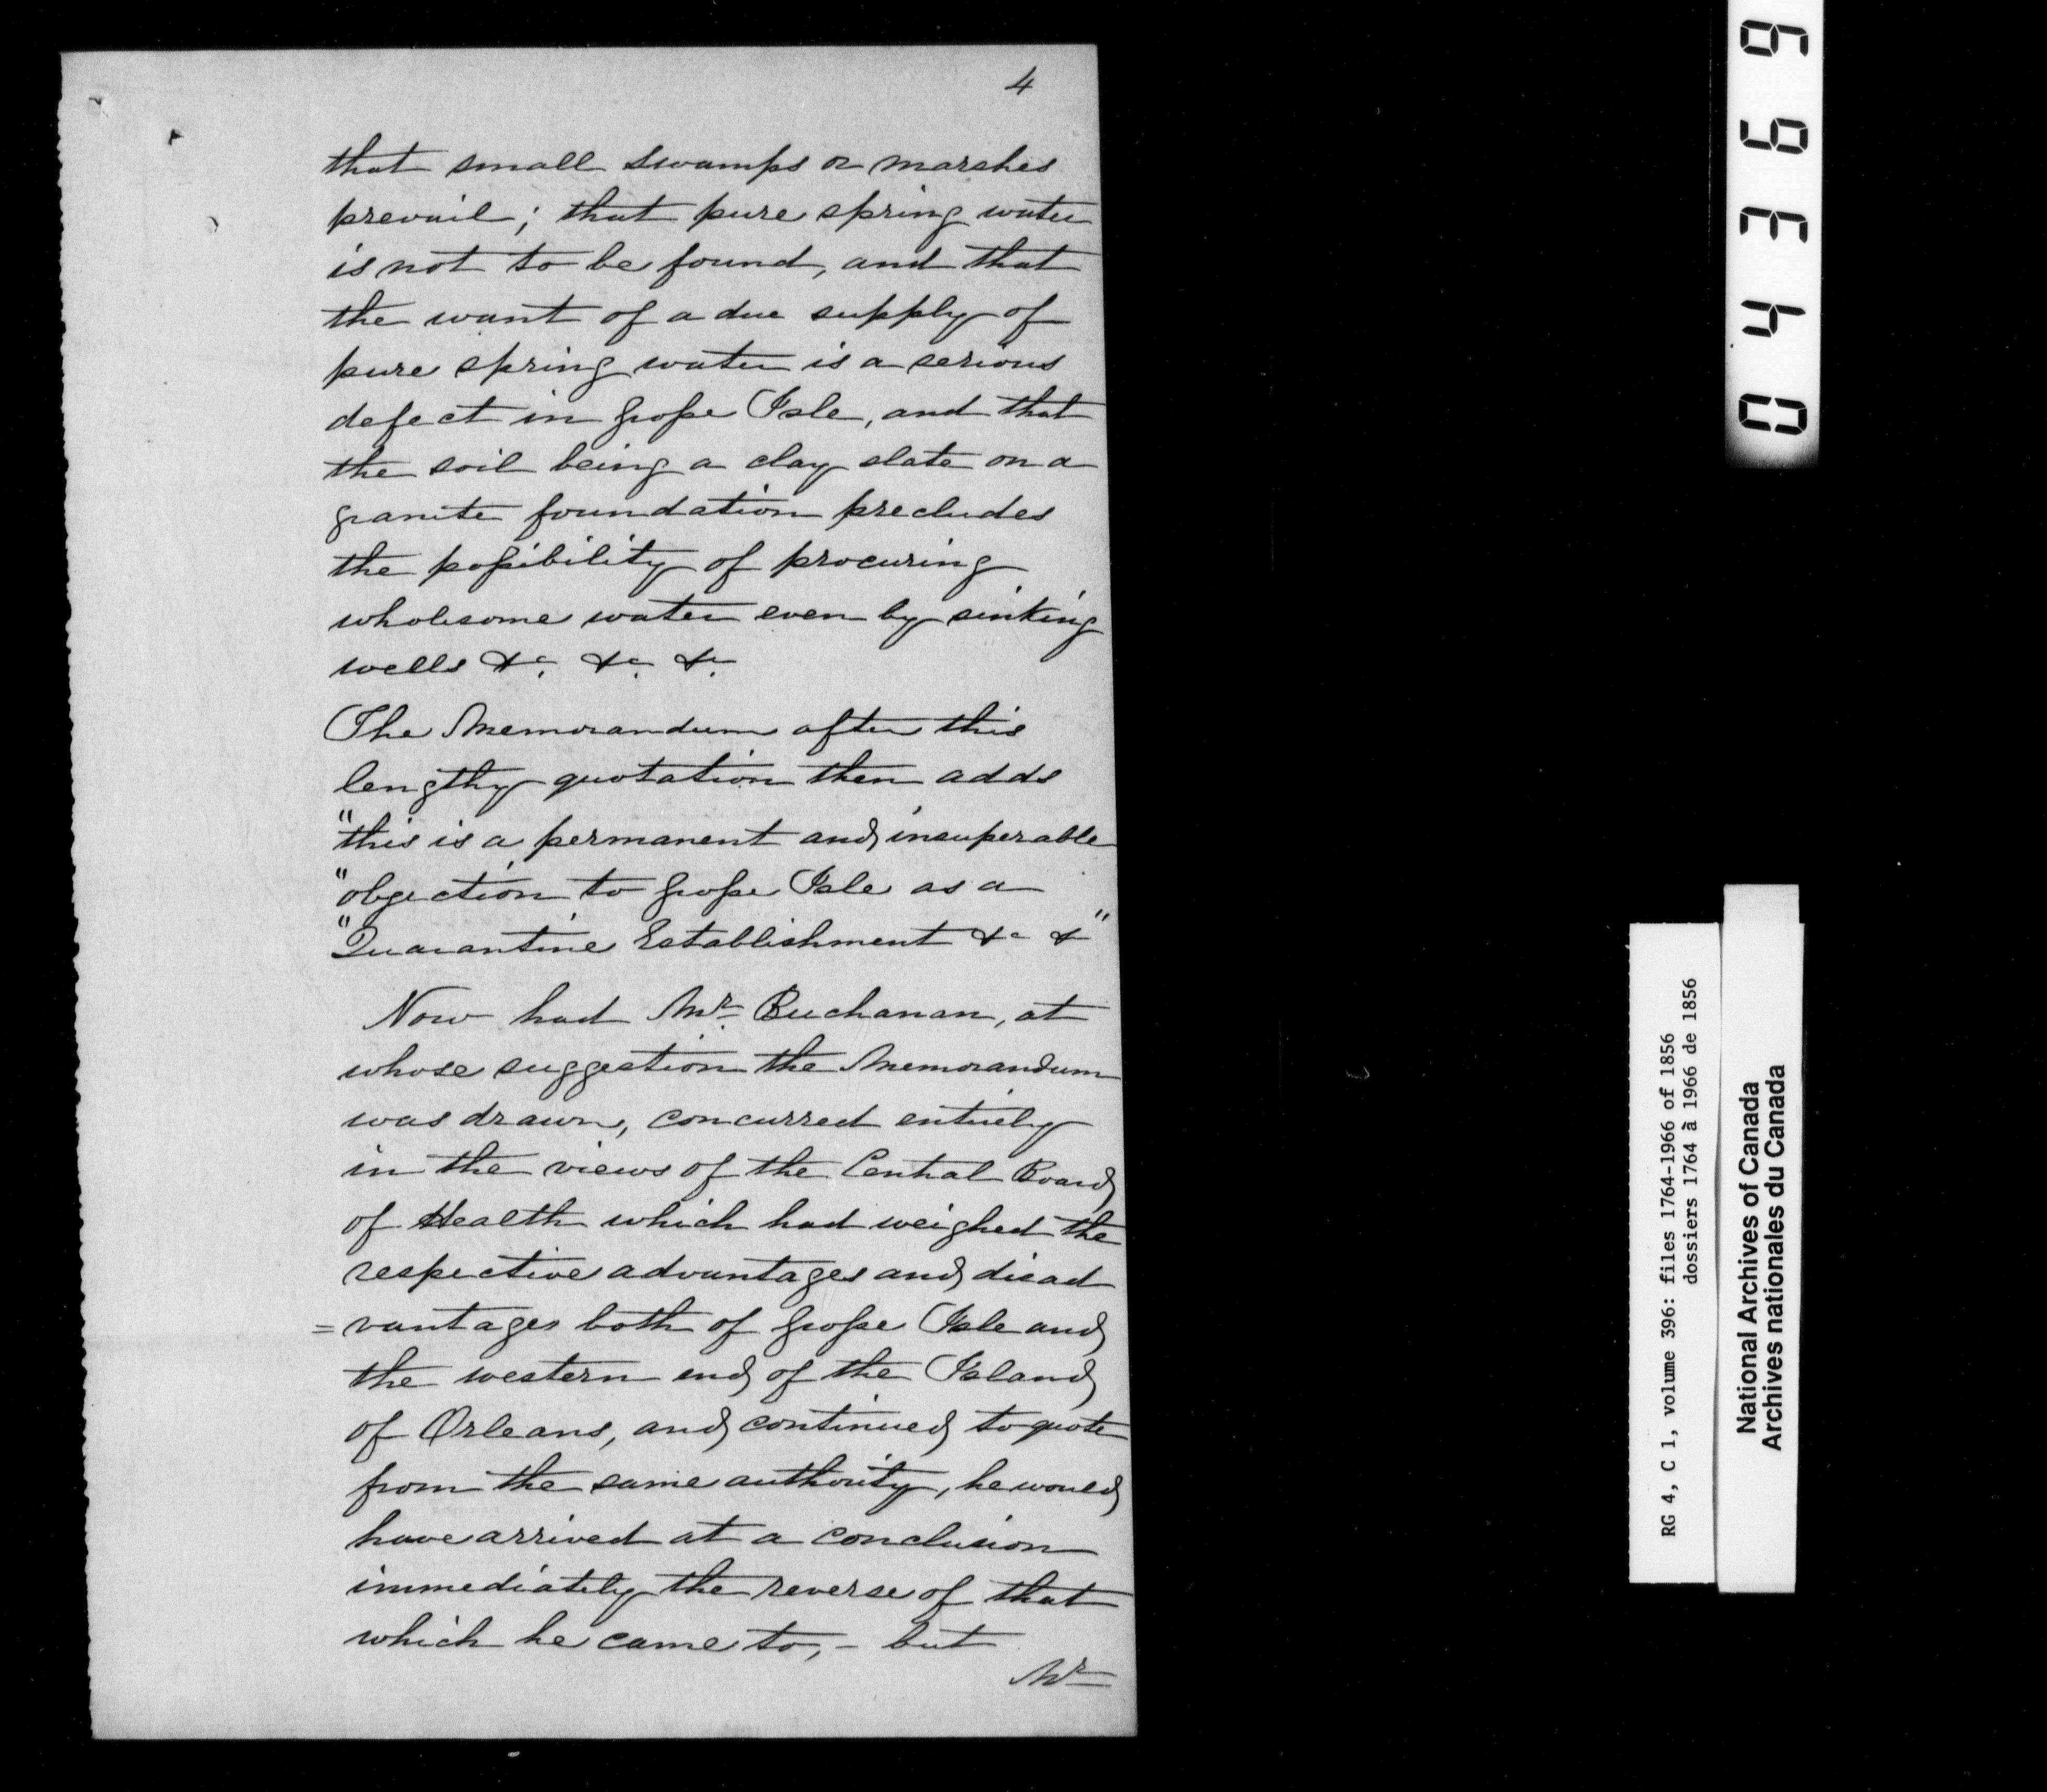 4
that small swamps or marshes
prevail; that pure spring water
is not to be found, and that
the want of a due supply of
pure spring water is a serious
defect in Grosse Isle, and that
the soil being a clay slate on a
granite foundation precludes
the possibility of procuring
wholesome water even by sinking
wells &c. &c. &c.
The Memorandum after this
lengthy quotation then adds
"this is a permanent and insuperable
"objection to Grosse Isle as a
"Quarantine Establishment &c &c"
Now had Mr. Buchanan, at
whose suggestion the Memorandum
was drawn, concurred entirely
in the views of the Central Board
of Health which had weighed the
respective advantages and disad
=vantages both of Grosse Isle and
the western end of the Island
of Orleans, and continued to quote
from the same authority, he would
have arrived at a conclusion
immediately the reverse of that
which he came to, - but
Mr
04369
RG 4, C 1, volume 396: files 1764-1966 of 1856
dossiers 1764 à 1966 de 1856
National Archives of Canada
Archives nationales du Canada